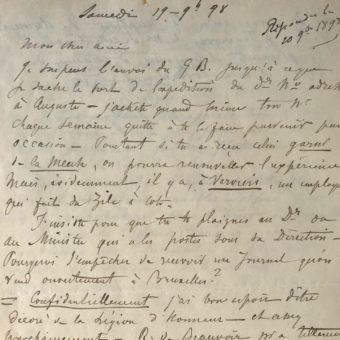 Samedi 19 - 9b 98
Répondu le
20 9bre 1898
Mon cher ami
Je suspens l'envoi du G B. jusqu'à ce que
je sache le sort de l'expédition du Dr No adressé
à Auguste - j'achète quand même ton No
chaque semaine quitte à te le faire parvenir par
occasion - Pourtant si tu as reçu celui garni
de la Meuse, on pourra renouveler l'expérience
Mais, évidemment, il y a, à Verviers, un employé
qui fait du zèle à côté.
J'insiste pour que tu te plaignes au Dr ou
au Ministre qui a les postes sous sa Direction -
Pourquoi t'empêcher de recevoir un Journal qu'on
vend ouvertement à Bruxelles?
= Confidentiellement j'ai bon espoir d'être
décoré de la Légion d'Honneur - et assez
prochainement - R. de Beauvoir m'a tellement